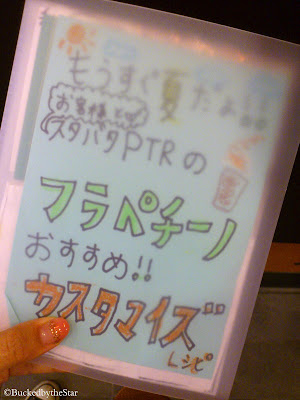 もうすぐ夏だよ!!
お客様とな
スタバタPTRの
フラペチーノ
おすすめ!!
カスタマイズ
レシピ
©BuckedbytheStar